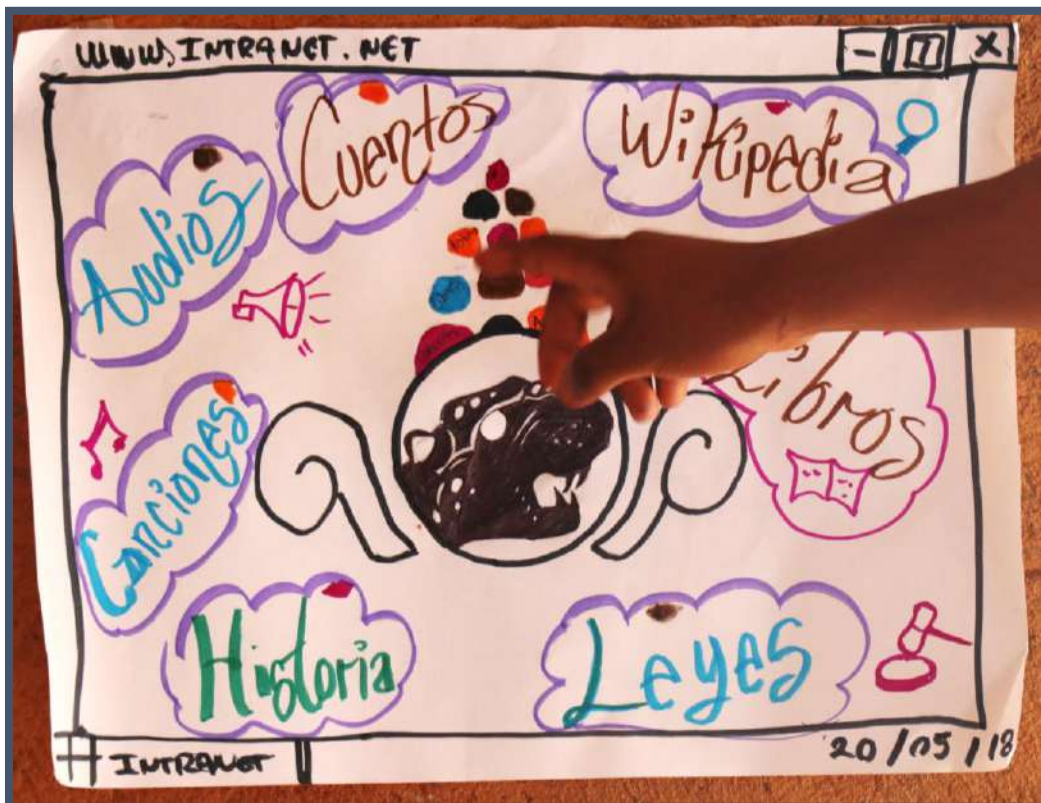 WWW.INTRANET.NET
Cuentos
Wikipedia
Audios
Libros
Canciones
Historia
Leyes
INTRANET
20/05/18